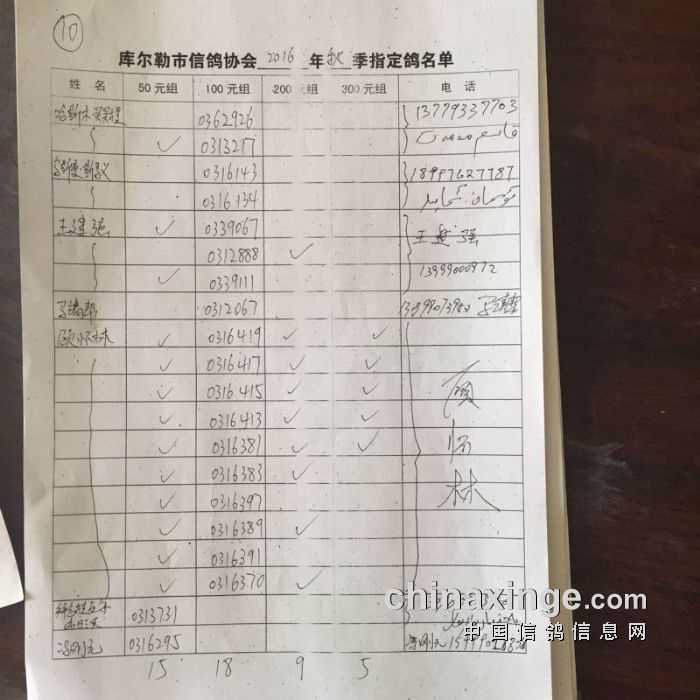 10
库尔勒市信鸽协会 2016 年 秋 季指定鸽名单
姓 名 50元组 100元组 200元组 300元组 电 话
0362926 13779337703
✓ 0313217
0316143 18997627787
0316134
王建强 ✓ 0339067 王建强
0312888 ✓
✓ 0339111 13999000972
0312067
顾怀林 ✓ 0316419 ✓ ✓ 顾怀林
✓ 0316417 ✓ ✓
✓ 0316415 ✓ ✓
✓ 0316413 ✓ ✓
✓ 0316381 ✓ ✓
✓ 0316383 ✓
✓ 0316397
✓ 0316389 ✓
✓ 0316391
✓ 0316370 ✓
0313731
冯刚元 0316295
15 18 9 5
chinaxinge.com
中国信鸽信息网